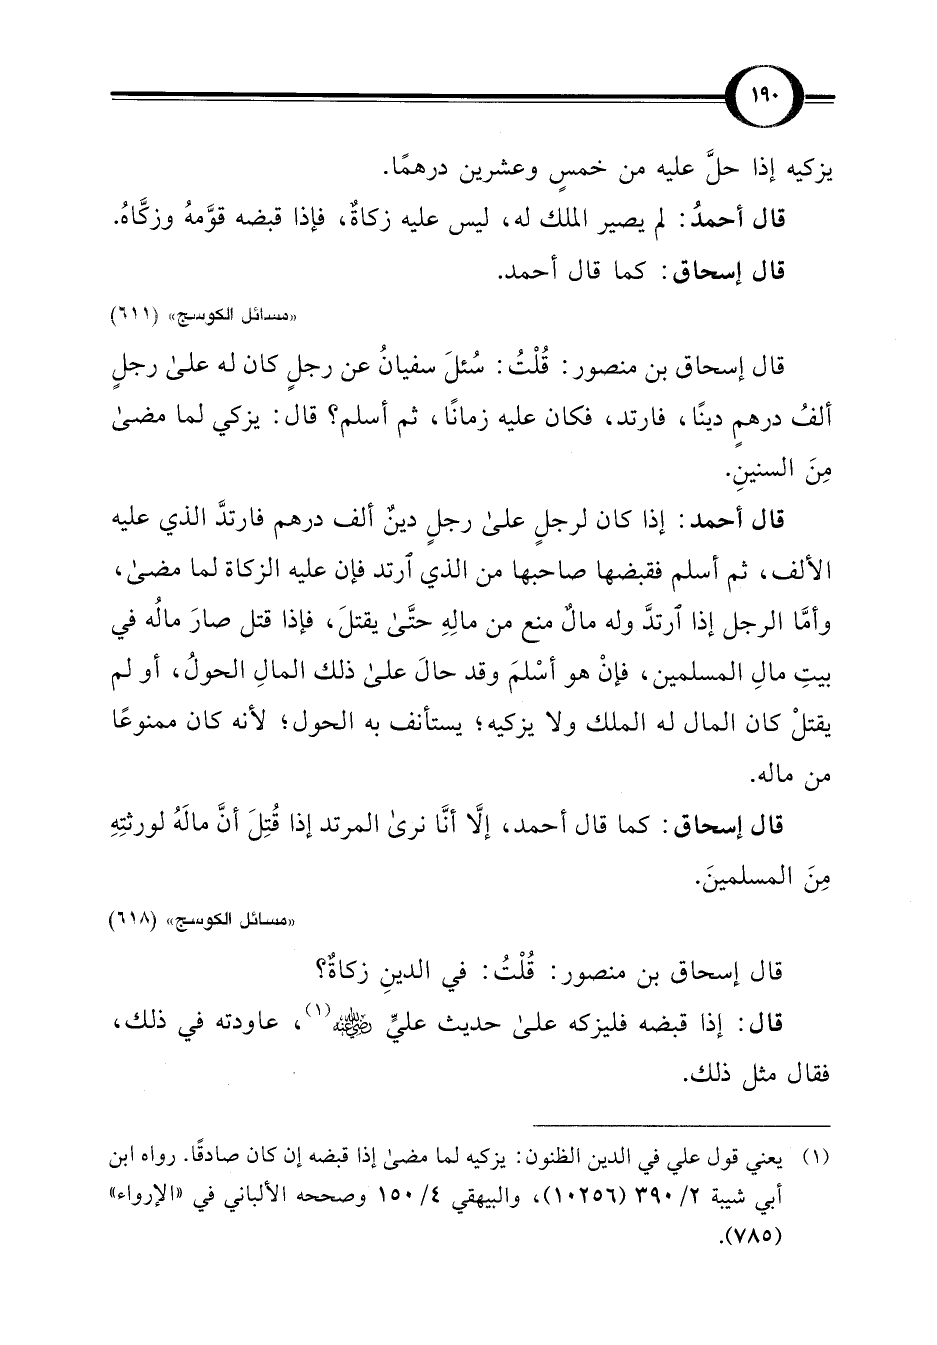 ١٩٠
يزكيه إذا حلَّ عليه من خمسٍ وعشرين درهمًا.
قال أحمدُ: لم يصير الملك له، ليس عليه زكاةٌ، فإذا قبضه قوَّمهُ وزكَّاهُ.
قال إسحاق: كما قال أحمد.
«مسائل الكوسج» (٦١١)
قال إسحاق بن منصور: قُلْتُ: سُئلَ سفيانُ عن رجلٍ كان له علىٰ رجلٍ
ألفُ درهمٍ دينًا، فارتد، فكان عليه زمانًا، ثم أسلم؟ قال: يزكي لما مضىٰ
مِنَ السنينِ.
قال أحمد: إذا كان لرجلٍ علىٰ رجلٍ دينٌ ألف درهم فارتدَّ الذي عليه
الألف، ثم أسلم فقبضها صاحبها من الذي ٱرتد فإن عليه الزكاة لما مضىٰ،
وأمَّا الرجل إذا ٱرتدَّ وله مالٌ منع من مالِهِ حتَّىٰ يقتلَ، فإذا قتل صارَ مالُه في
بيتِ مالِ المسلمين، فإنْ هو أسْلمَ وقد حالَ علىٰ ذلك المالِ الحولُ، أو لم
يقتلْ كان المال له الملك ولا يزكيه؛ يستأنف به الحول؛ لأنه كان ممنوعًا
من ماله.
قال إسحاق: كما قال أحمد، إلَّا أنَّا نرىٰ المرتد إذا قُتِلَ أنَّ مالَهُ لورثتِهِ
مِنَ المسلمينَ.
«مسائل الكوسج» (٦١٨)
قال إسحاق بن منصور: قُلْتُ: في الدينِ زكاةٌ؟
قال: إذا قبضه فليزكه علىٰ حديث عليٍّ رضي الله عنه(١)، عاودته في ذلك،
فقال مثل ذلك.
(١) يعني قول علي في الدين الظنون: يزكيه لما مضىٰ إذا قبضه إن كان صادقًا. رواه ابن
أبي شيبة ٢/ ٣٩٠ (١٠٢٥٦)، والبيهقي ٤/ ١٥٠ وصححه الألباني في «الإرواء»
(٧٨٥).